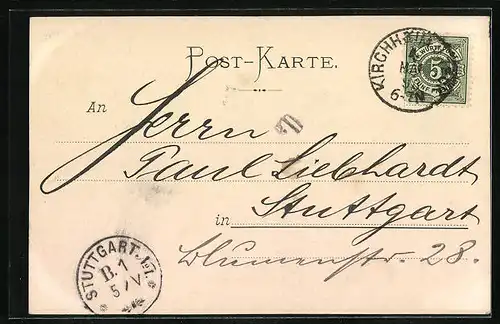 POST-KARTE.
KIRCHHEIM
5
6-7N
An
Herrn
Paul Liebhardt
in Stuttgart
Blumenstr. 28.
STUTTGART.№1.
B.1
5/V